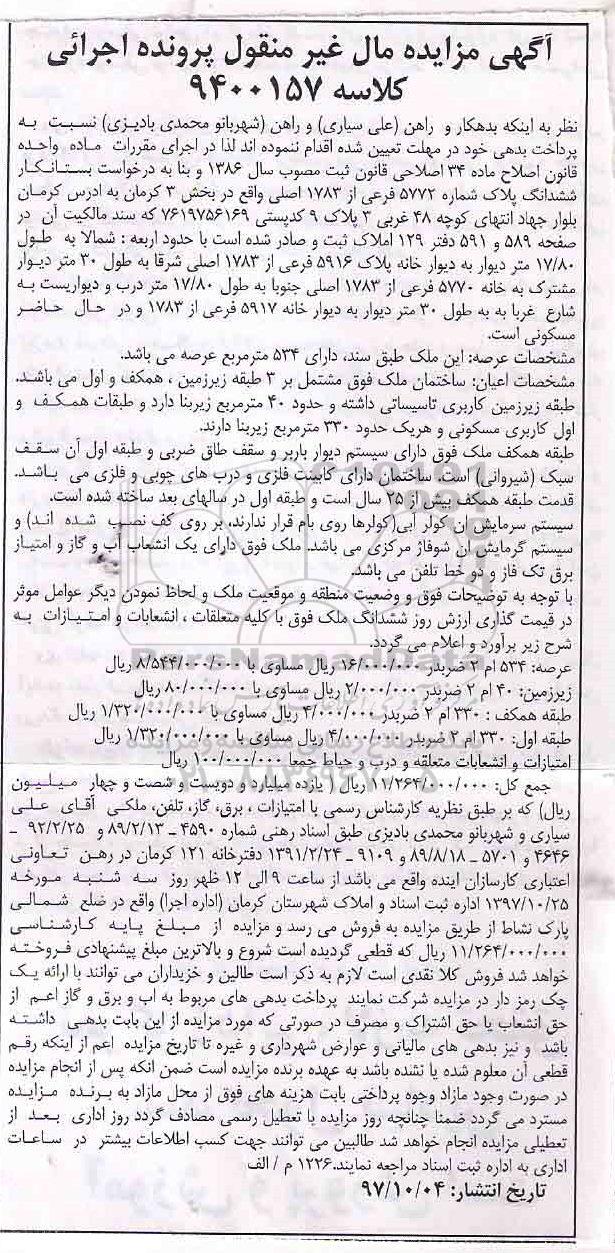 آگهی مزایده مال غیر منقول پرونده اجرائی
کلاسه ۹۴۰۰۱۵۷
نظر به اینکه بدهکار و راهن (علی سیاری) و راهن (شهربانو محمدی بادیزی) نسبت به
پرداخت بدهی خود در مهلت تعیین شده اقدام ننموده اند لذا در اجرای مقررات ماده واحده
قانون اصلاح ماده ۳۴ اصلاحی قانون ثبت مصوب سال ۱۳۸۶ و بنا به درخواست بستانکار
ششدانگ پلاک شماره ۵۷۷۲ فرعی از ۱۷۸۳ اصلی واقع در بخش ۳ کرمان به ادرس کرمان
بلوار جهاد انتهای کوچه ۴۸ غربی ۳ پلاک ۹ کدپستی ۷۶۱۹۷۵۶۱۶۹ که سند مالکیت آن در
صفحه ۵۸۹ و ۵۹۱ دفتر ۱۲۹ املاک ثبت و صادر شده است با حدود اربعه : شمالا به طول
۱۷/۸۰ متر دیوار به دیوار خانه پلاک ۵۹۱۶ فرعی از ۱۷۸۳ اصلی شرقا به طول ۳۰ متر دیوار
مشترک به خانه ۵۷۷۰ فرعی از ۱۷۸۳ اصلی جنوبا به طول ۱۷/۸۰ متر درب و دیواریست به
شارع غربا به به طول ۳۰ متر دیوار به دیوار خانه ۵۹۱۷ فرعی از ۱۷۸۳ و در حال حاضر
مسکونی است.
مشخصات عرصه: این ملک طبق سند، دارای ۵۳۴ مترمربع عرصه می باشد.
مشخصات اعیان: ساختمان ملک فوق مشتمل بر ۳ طبقه زیرزمین ، همکف و اول می باشد.
طبقه زیرزمین کاربری تاسیساتی داشته و حدود ۴۰ مترمربع زیربنا دارد و طبقات همکف و
اول کاربری مسکونی و هریک حدود ۳۳۰ مترمربع زیربنا دارند.
طبقه همکف ملک فوق دارای سیستم دیوار باربر و سقف طاق ضربی و طبقه اول آن سقف
سبک (شیروانی) است. ساختمان دارای کابینت فلزی و درب های چوبی و فلزی می باشد.
قدمت طبقه همکف بیش از ۲۵ سال است و طبقه اول در سالهای بعد ساخته شده است.
سیستم سرمایش ان کولر آبی(کولرها روی بام قرار ندارند، بر روی کف نصب شده اند) و
سیستم گرمایش ان شوفاژ مرکزی می باشد. ملک فوق دارای یک انشعاب آب و گاز و امتیاز
برق تک فاز و دو خط تلفن می باشد.
با توجه به توضیحات فوق و وضعیت منطقه و موقعیت ملک و لحاظ نمودن دیگر عوامل موثر
در قیمت گذاری ارزش روز ششدانگ ملک فوق با کلیه متعلقات ، انشعابات و امتیازات به
شرح زیر براورد و اعلام می گردد.
عرصه: ۵۳۴ ام ۲ ضربدر ۱۶/۰۰۰/۰۰۰ ریال مساوی با ۸/۵۴۴/۰۰۰/۰۰۰ ریال
زیرزمین: ۴۰ ام ۲ ضربدر ۲/۰۰۰/۰۰۰ ریال مساوی با ۸۰/۰۰۰/۰۰۰ ریال
طبقه همکف : ۳۳۰ ام ۲ ضربدر ۴/۰۰۰/۰۰۰ ریال مساوی با ۱/۳۲۰/۰۰۰/۰۰۰ ریال
طبقه اول: ۳۳۰ ام ۲ ضربدر ۴/۰۰۰/۰۰۰ ریال مساوی با ۱/۳۲۰/۰۰۰/۰۰۰ ریال
امتیازات و انشعابات متعلقه و درب و حیاط جمعا ۱۰۰/۰۰۰/۰۰۰ ریال
جمع کل: ۱۱/۲۶۴/۰۰۰/۰۰۰ ریال ( یازده میلیارد و دویست و شصت و چهار میلیون
ریال) که بر طبق نظریه کارشناس رسمی با امتیازات ، برق، گاز، تلفن، ملکی آقای علی
سیاری و شهربانو محمدی بادیزی طبق اسناد رهنی شماره ۴۵۹۰ ـ ۸۹/۲/۱۳ و ۹۲/۲/۲۵ ـ
۴۶۴۶ و ۵۷۰۱ ـ ۸۹/۸/۱۸ و ۹۱۰۹ ـ ۱۳۹۱/۲/۲۴ دفترخانه ۱۲۱ کرمان در رهن تعاونی
اعتباری کارسازان اینده واقع می باشد از ساعت ۹ الی ۱۲ ظهر روز سه شنبه مورخه
۱۳۹۷/۱۰/۲۵ اداره ثبت اسناد و املاک شهرستان کرمان (اداره اجرا) واقع در ضلع شمالی
پارک نشاط از طریق مزایده به فروش می رسد و مزایده از مبلغ پایه کارشناسی
۱۱/۲۶۴/۰۰۰/۰۰۰ ریال که قطعی گردیده است شروع و بالاترین مبلغ پیشنهادی فروخته
خواهد شد فروش کلا نقدی است لازم به ذکر است طالین و خریداران می توانند با ارائه یک
چک رمز دار در مزایده شرکت نمایند پرداخت بدهی های مربوط به اب و برق و گاز اعم از
حق انشعاب یا حق اشتراک و مصرف در صورتی که مورد مزایده از این بابت بدهی داشته
باشد و نیز بدهی های مالیاتی و عوارض شهرداری و غیره تا تاریخ مزایده اعم از اینکه رقم
قطعی آن معلوم شده یا نشده باشد به عهده برنده مزایده است ضمن انکه پس از انجام مزایده
در صورت وجود مازاد وجوه پرداختی بابت هزینه های فوق از محل مازاد به برنده مزایده
مسترد می گردد ضمنا چنانچه روز مزایده با تعطیل رسمی مصادف گردد روز اداری بعد از
تعطیلی مزایده انجام خواهد شد طالبین می توانند جهت کسب اطلاعات بیشتر در ساعات
اداری به اداره ثبت اسناد مراجعه نمایند.۱۲۲۶ م / الف
تاریخ انتشار: ۹۷/۱۰/۰۴